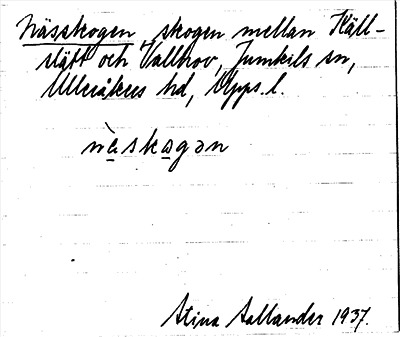 Nässkogen, skogen mellan Käll-
slätt och Vallhov, Jumkils sn,
Ulleråkers hd, Upps. l.
nèskogən
Stina Sallander 1937.